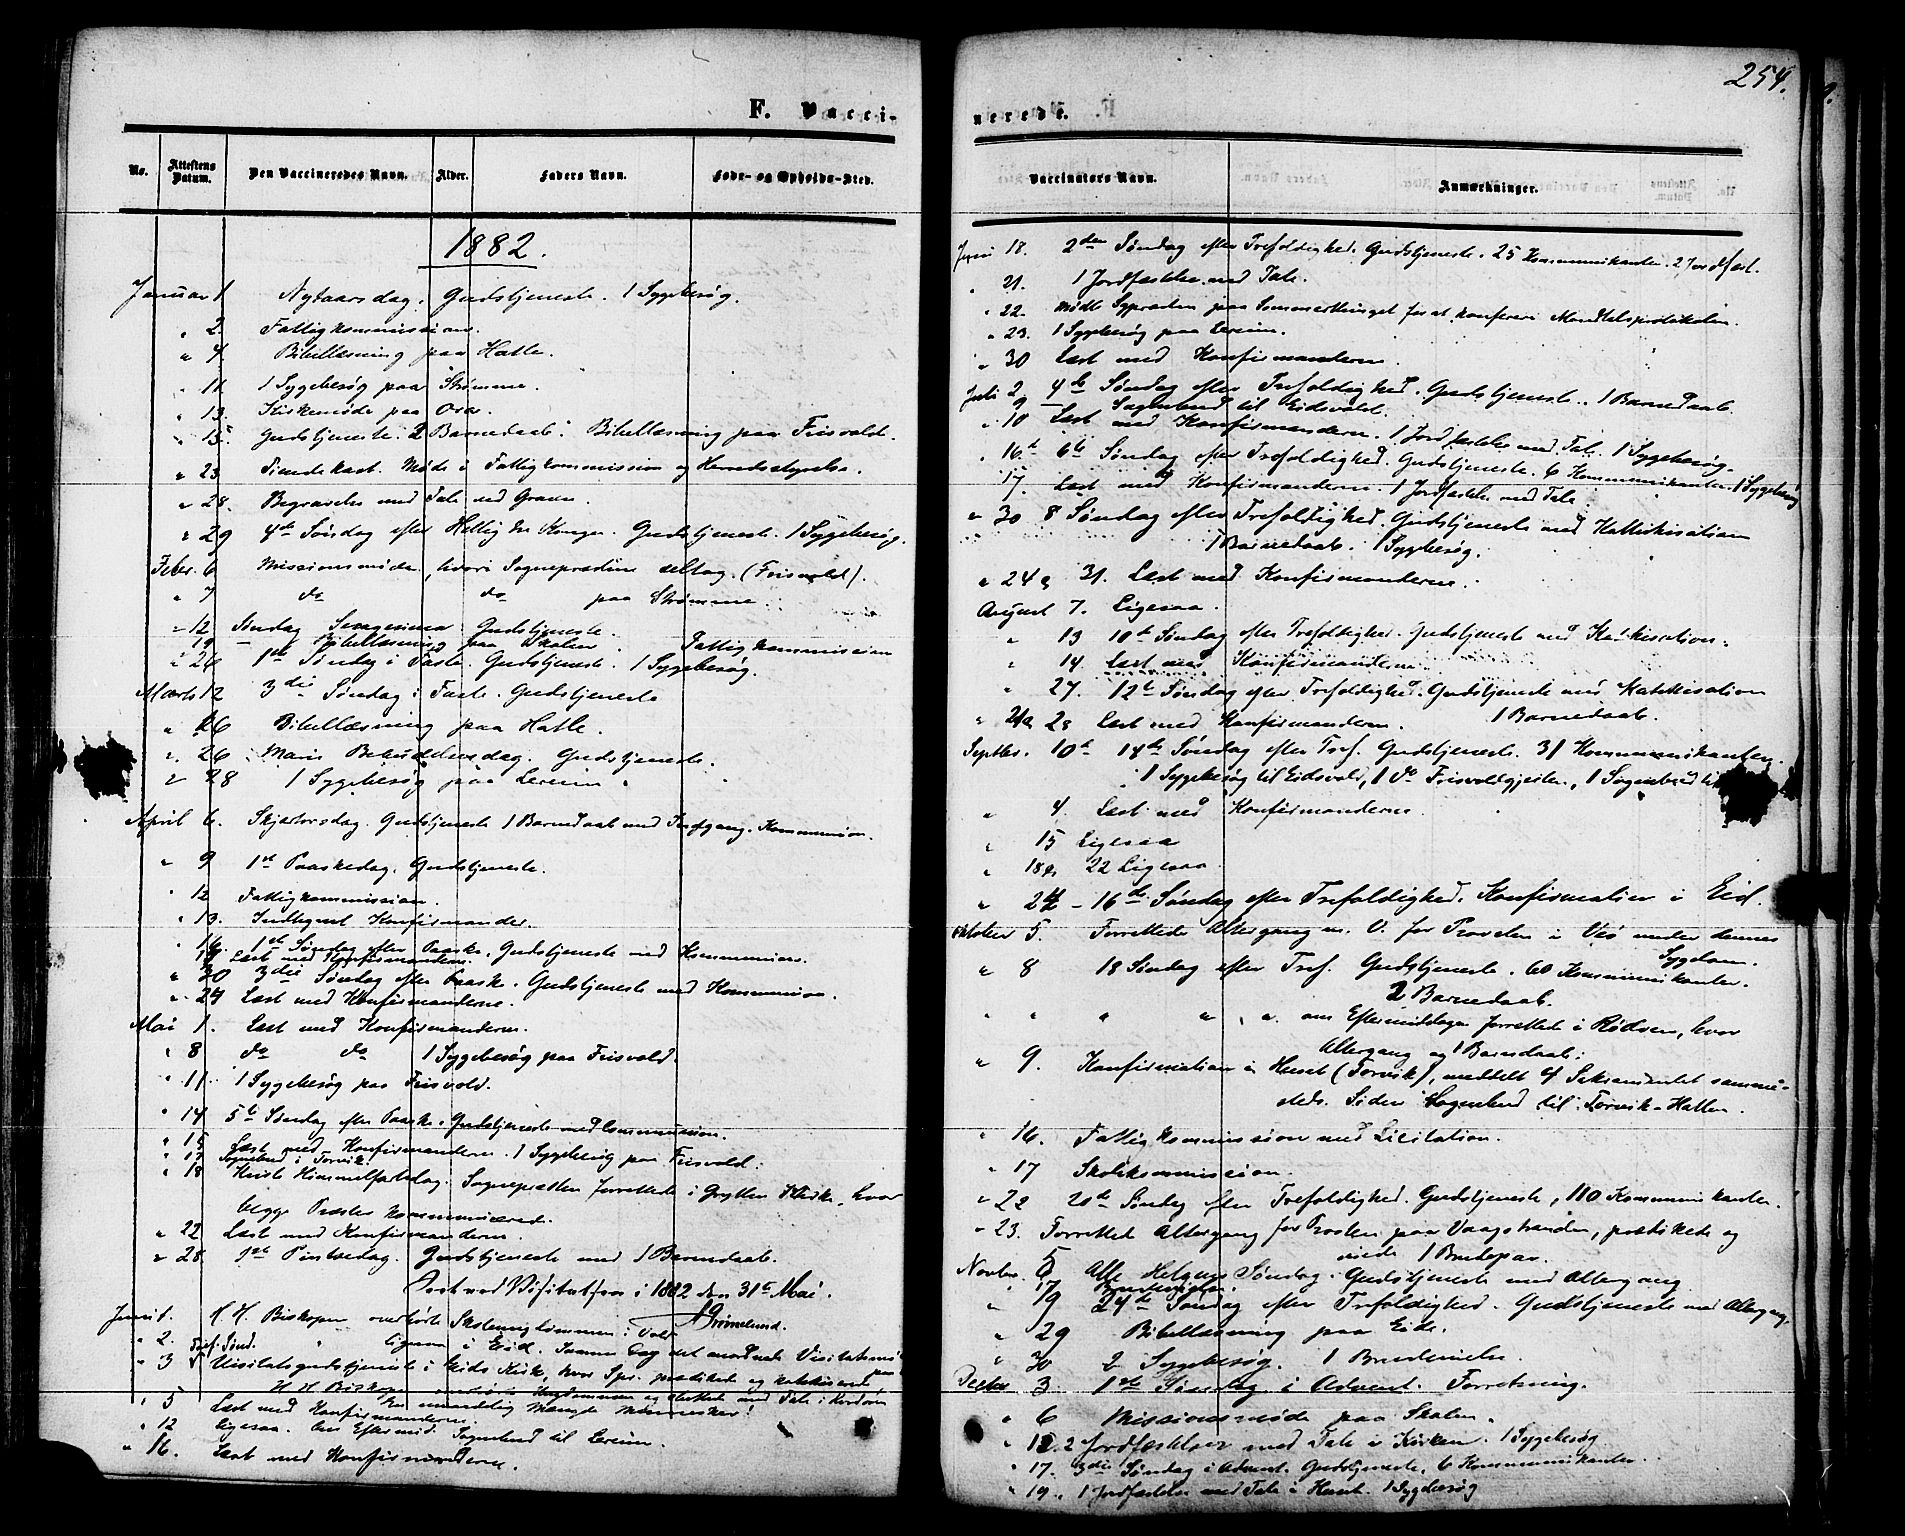 254.
F. Vacci-
nerede.
No.
Attestens Datum.
Den Vaccineredes Navn.
Alder.
Faders Navn.
Føde- og Opholds-Sted.
Vaccinators Navn.
Anmærkninger.
1882.
Januar 1 Nytaarsdag. Gudstjeneste. 1 Sygebesøg.
" 2. Fattigkommission.
" 4 Bibellæsning paa Hatle.
" 11 1 Sygebesøg paa Strømme.
" 13. paa Ora.
" 15 Gudstjeneste. 2 Barnedaab. Bibellæsning paa Frisvold.
" 23 Møde i Fattigkommission og Herredsstyrelse.
" 28. Begravelse med Tale ved Graven.
" 29 4de Søndag efter Hellig tre Konger. Gudstjeneste. 1 Sygebesøg.
Febr. 6 Missionsmøde, hvori Sognepræsten deltog. (Frisvold).
" 7 do do paa Strømme.
" 12 Søndag Sexagesima Gudstjeneste.
" 19 Bibellæsning paa Skolen. Fattigkommission
" 26 1ste Søndag i Faste. Gudstjeneste. 1 Sygebesøg.
Marts 12 3die Søndag i Faste. Gudstjeneste
" 16 Bibellæsning paa Hatle.
" 26 Mariæ Bebudelsesdag. Gudstjeneste.
" 28 1 Sygebesøg paa Lereim.
April 6. Skjærtorsdag. Gudstjeneste 1 Barnedaab med Indgang. Kommunion.
" 9 1ste Paaskedag. Gudstjeneste.
" 12 Fattigkommission.
" 13. Indtegnet Konfirmander.
" 16. 1ste Søndag efter Paaske. Gudstjeneste med Kommunion.
" 17 Læst med Konfirmanderne.
" 30 3die Søndag efter Paaske. Gudstjeneste med Kommunion.
" 24 Læst med Konfirmanderne.
Mai 1. Læst med Konfirmanderne.
" 8 do do 1 Sygebesøg paa Frisvold.
" 11 1 Sygebesøg paa Frisvold.
" 14 5te Søndag efter Paaske. Gudstjeneste med Communion.
" 15 Læst med Konfirmanderne. 1 Sygebesøg paa Frisvold.
" 17 Sognebud i Torvik.
" 18 Kristi Himmelfartsdag. Sognepræsten forrettede i Grytten Kirke, hvor
begge Præster kommunicerede.
" 22 Læst med Konfirmanderne.
" 28 1ste Pintsedag. Gudstjeneste med 1 Barnedaab.
ved Visitatsen i 1882 den 31te Mai.
Grimelund.
Juni 1. H. H. Biskopen overhørte Skoleungdommen i Vold
" 2. " ligesaa i Eid. Samme Dag det anordnede Visitatsmøde
" 3 Tref. Sønd. Visitatsgudstjeneste i Eids Kirke, hvor Spr. prædikede og katekiserede
H. H. Biskopen Ungdommen og sluttede med Tale i Kordøren
En mandelig Mængde Mennesker!
" 5 Læst med Konfirmanderne.
" 12 Ligesaa. Om Eftermid. Sognebud til Lereim.
" 16. Læst med Konfirmanderne.
Juni 18. 2den Søndag efter Trefoldighed. Gudstjeneste. 25 Kommunikanter. 2 Jordfæst.
" 21. 1 Jordfæstelse med Tale.
" 22. Mødte Sypræsten paa Sommerthinget for at konferere Mandtalsprotokolen.
" 23. 1 Sygebesøg paa Lereim.
" 30 Læst med Konfirmanderne.
Juli 2. 4de Søndag efter Trefoldighed. Gudstjeneste. 1 Barnedaab.
" 9 Sognebud til Eidsvold.
" 10 Læst med Konfirmanderne. 1 Jordfæstelse med Tale. 1 Sygebesøg.
" 16de 6te Søndag efter Trefoldighed. Gudstjeneste. 6 Kommunikanter. 1 Sygebesøg
" 17. Læst med Konfirmanderne. 1 Jordfæstelse med Tale
" 30 8 Søndag efter Trefoldighed. Gudstjeneste med Katekisation
1 Barnedaab. 1 Sygebesøg.
" 24 & 31. Læst med Konfirmanderne.
August 7. Ligesaa.
" 13 10de Søndag efter Trefoldighed. Gudstjeneste med Katekisation.
" 14. Læst med Konfirmanderne.
" 27. 12te Søndag efter Trefoldighed. Gudstjeneste med Katekisation
" 21 & 28 Læst med Konfirmanderne. 1 Barnedaab.
Septbr. 10de 14de Søndag efter Tref. Gudstjeneste. 31 Kommunikanter.
1 Sygebesøg til Eidsvold, 1 do Frisvoldgjerdet, 1 Sognebud til
" 4. Læst med Konfirmanderne.
" 15 Ligesaa
" 18 & 22 Ligesaa.
" 24 - 16de Søndag efter Trefoldighed. Konfirmation i Eid.
Oktober 5. Forrettede Altergang m. V. for Provsten i Veø under dennes
Sygdom.
" 8 18 Søndag efter Tref. Gudstjeneste. 60 Kommunikanter.
2 Barnedaab.
" " " " " om Eftermiddagen forrettede i Rødven, hvor
Altergang og 1 Barnedaab.
" 9. Konfirmation i Huset (Torvik), meddelt af Sakramentet samme-
steds. Siden Sognebud til Torvik-Hatlen.
" 16. Fattigkommission med Licitation.
" 17 Skolekommission.
" 22 20de Søndag efter Trefoldighed. Gudstjeneste, 110 Kommunikanter
" 23. Forrettet Altergang for Provsten paa Vaagstranden, prædikede og
viede 1 Brudepar.
Novbr. 5 Alle Helgens Søndag. Gudstjeneste med Altergang
" 17 Brudevielse.
" 19 24de Søndag efter Trefoldighed. Gudstjeneste med Altergang.
" 29 Bibellæsning paa Eide.
" 30 2 Sygebesøg. 1 Brudevielse.
Decbr 3. 1ste Søndag i Advent. Forretning.
" 6 Missionsmøde paa Skolen.
" 12. 2 Jordfæstelser med Tale i Kirken. 1 Sygebesøg
" 17. 3die Søndag i Advent. Gudstjeneste. 6 Kommunikanter.
" 19. 1 Jordfæstelse med Tale i Huset. 1 Sygebesøg